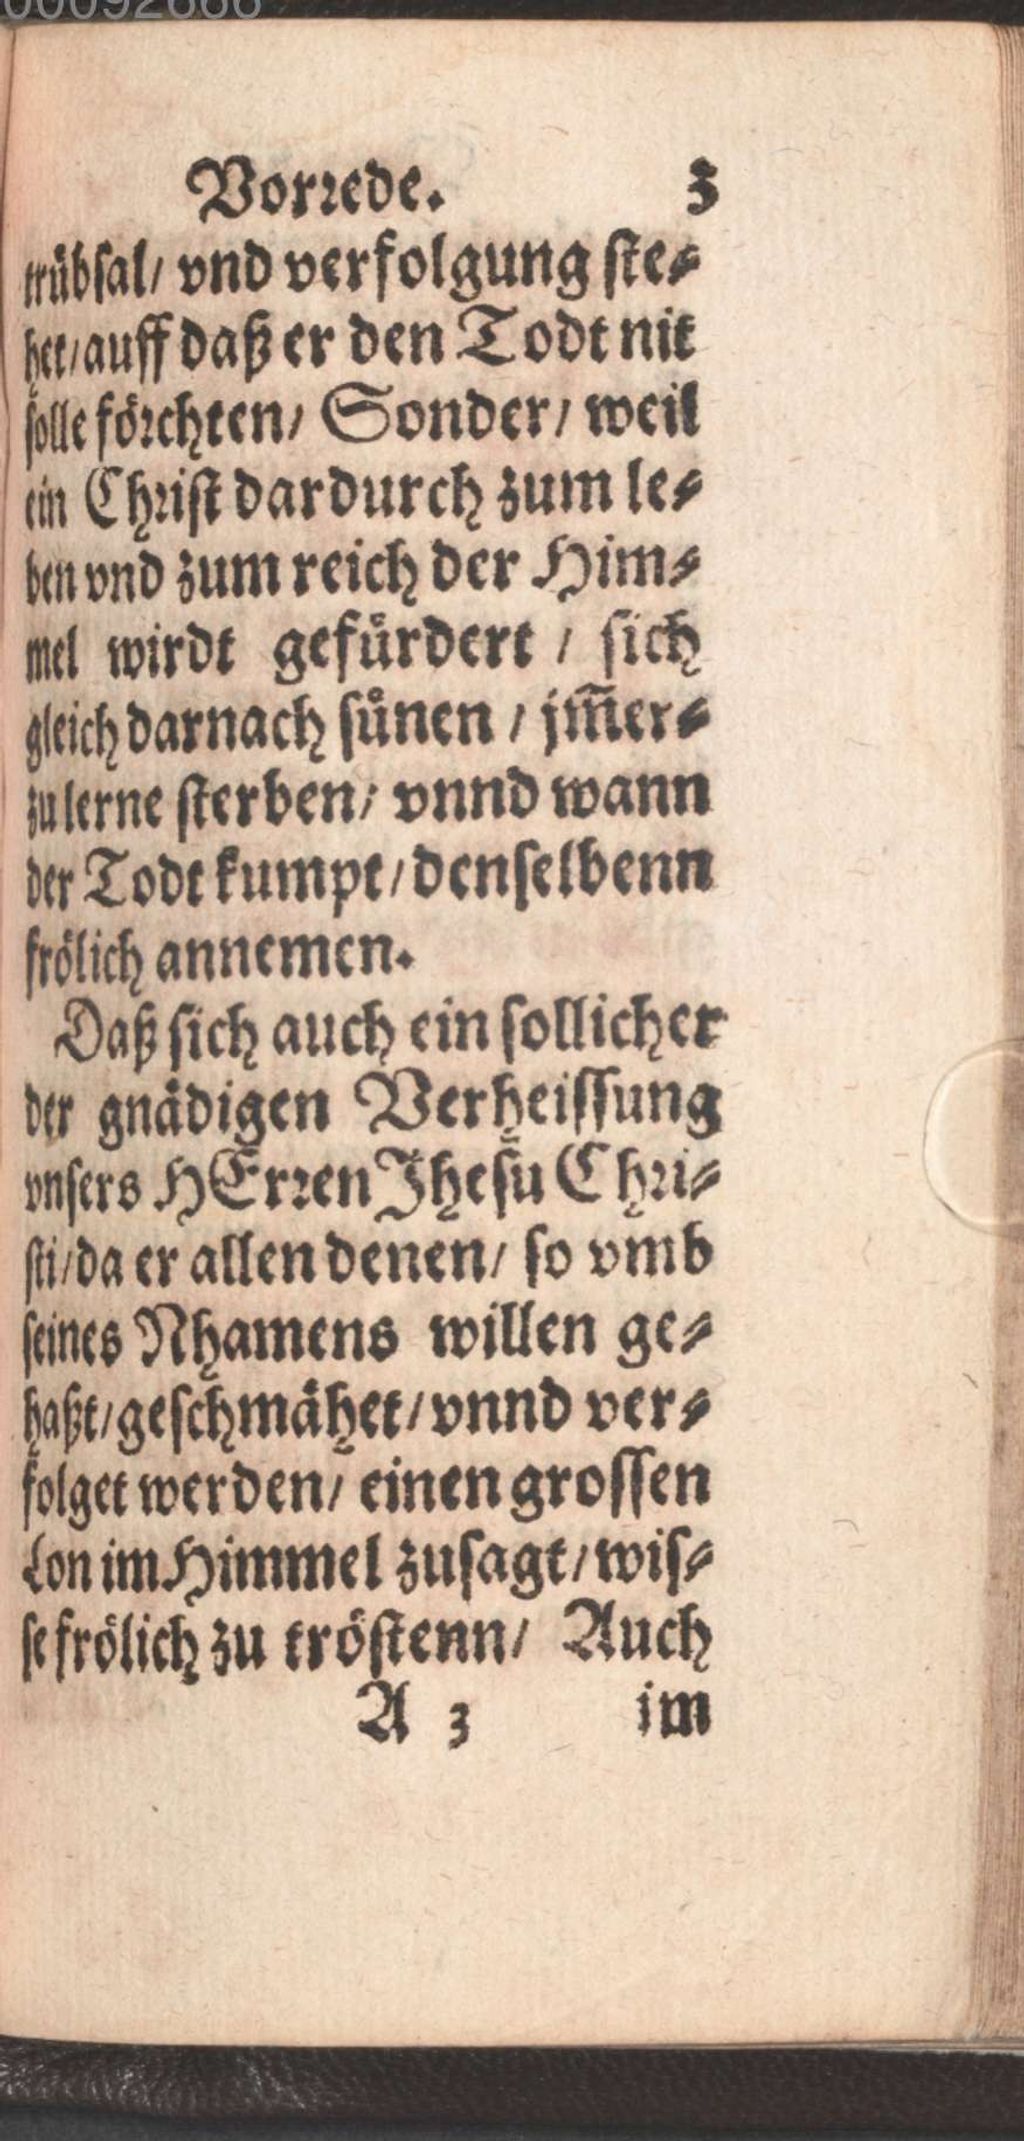 Vorrede. 3
trübsal/ vnd verfolgung ste⸗
het/ auff daß er den Todt nit
solle förchten/ Sonder/ weil
ein Christ dardurch zum le⸗
ben vnd zum reich der Him⸗
mel wirdt gefürdert / sich
gleich darnach sünen / jm̃er⸗
zu lerne sterben/ vnnd wann
der Todt kumpt/ denselbenn
frölich annemen.
Daß sich auch ein sollicher
der gnädigen Verheissung
vnsers HErren Jhesu Chri⸗
sti/ da er allen denen/ so vmb
seines Nhamens willen ge⸗
haßt/ geschmähet/ vnnd ver⸗
folget werden/ einen grossen
Lon im Himmel zusagt/ wis⸗
se frölich zu tröstenn/ Auch
A 3 im